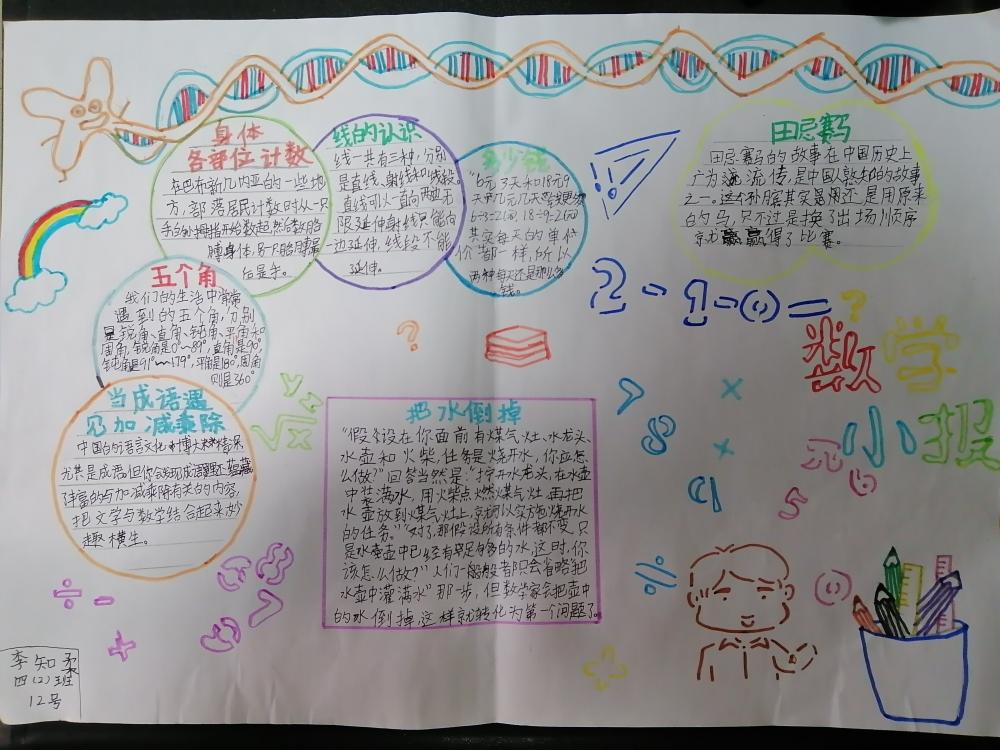 身体
各部位计数
在巴布新几内亚的一些地
方,部落居民计数时从一只
手的小拇指开始数起,然后数胳
膊身体,另一只胳膊最
后是手。
线的认识
线一共有三种,分别
是直线、射线和线段。
直线可以一直向两边无
限延伸射线只能向
一边延伸,线段不能
延伸。
多少钱
"6元3天和18元9
天
6÷3=2(元) 18÷9=2(元)
其实每天的单位
价都一样,所以
两种每天还是那么多
钱。
田忌赛马
田忌赛马的故事在中国历史上
广为流传,是中国人熟知的故事
之一。这个孙膑其实是用还是用原来
的马,只不过是换了出场顺序
就赢得了比赛。
五个角
我们的生活中常常
遇到的五个角,分别
是锐角、直角、钝角、平角和
周角,锐角是0°~89°,直角是90°,
钝角是91°~179°,平角是180°,周角
则是360°
2-1=(0)=?
数学
小报
当成语遇
见加减乘除
中国的语言文化博大精深
尤其是成语但你会发现成语里还蕴藏
丰富的与加减乘除有关的内容,
把文学与数学结合起来,妙
趣横生。
把水倒掉
"假设在你面前有煤气灶、水龙头、
水壶和火柴,任务是烧开水,你应怎
么做?"回答当然是:"拧开水龙头,在水壶
中装满水,用火柴点燃煤气灶,再把
水壶放到煤气灶上,就可以实施烧开水
的任务。""对了,那假设所有条件都不变,只
是水壶中已经有了足够多的水,这时,你
该怎么做?"人们一般都只会省略把
水壶中灌满水"那一步,但数学家会把壶中
的水倒掉,这样就转化为第一个问题了。
李知柔
四(2)班
12号